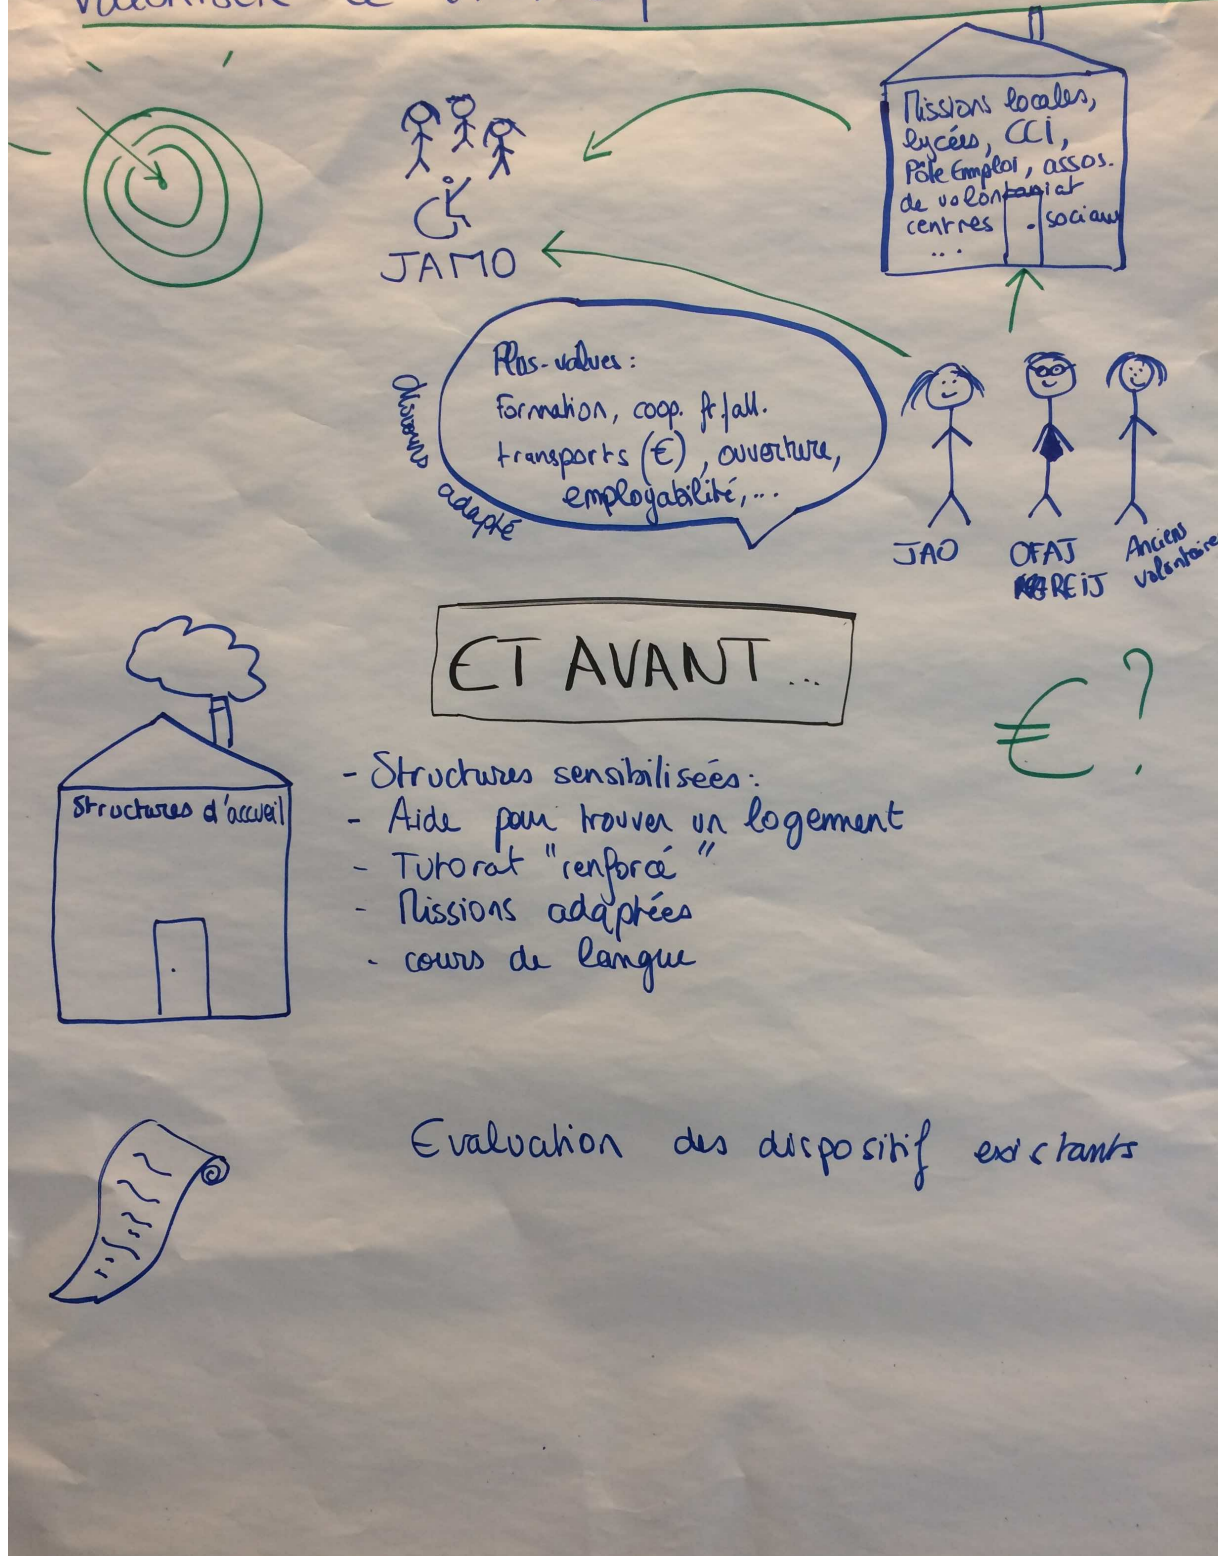 JAMO
Missions locales,
lycées, CCI,
Pôle Emploi, assos.
de volontariat
centres sociaux
...
Plus-values :
Formation, coop. fr/all.
transports (€), ouverture,
employabilité,...
discours adapté
JAO
OFAJ
REIJ
Anciens
volontaires
ET AVANT...
€?
Structures d'accueil
- Structures sensibilisées :
- Aide pour trouver un logement
- Tutorat "renforcé"
- Missions adaptées
- cours de langue
Evaluation des dispositif existants